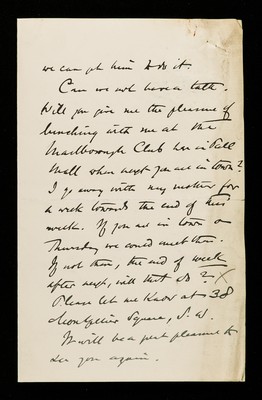 we can get him to do it.
Can we not have a talk.
Will you give me the pleasure of
lunching with me at the
Marlborough Club here in Pall
Mall when next you are in town?
I go away with my mother for
a week towards the end of this
week. If you are in town on
Thursday we could meet then.
If not then, the end of week
after next, will that do?
Please let me know at 38
Montpelier Square, S.W.
It will be a great pleasure to
see you again.